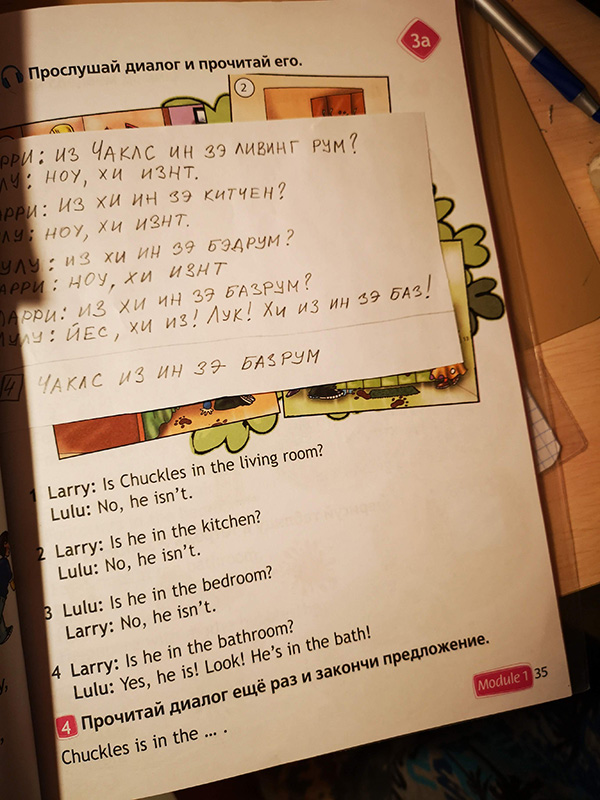 3a
Прослушай диалог и прочитай его.
2
РРИ: ИЗ ЧАКЛС ИН ЗЭ ЛИВИНГ РУМ?
ЛУ: НОУ, ХИ ИЗНТ.
АРРИ: ИЗ ХИ ИН ЗЭ КИТЧЕН?
ЛУ: НОУ, ХИ ИЗНТ.
УЛУ: ИЗ ХИ ИН ЗЭ БЭДРУМ?
АРРИ: НОУ, ХИ ИЗНТ
ЛАРРИ: ИЗ ХИ ИН ЗЭ БАЗРУМ?
ЛУЛУ: ЙЕС, ХИ ИЗ! ЛУК! ХИ ИЗ ИН ЗЭ БАЗ!
4 ЧАКЛС ИЗ ИН ЗЭ БАЗРУМ
1 Larry: Is Chuckles in the living room?
Lulu: No, he isn't.
2 Larry: Is he in the kitchen?
Lulu: No, he isn't.
3 Lulu: Is he in the bedroom?
Larry: No, he isn't.
4 Larry: Is he in the bathroom?
Lulu: Yes, he is! Look! He's in the bath!
4 Прочитай диалог ещё раз и закончи предложение.
Chuckles is in the ... .
Module 1 35